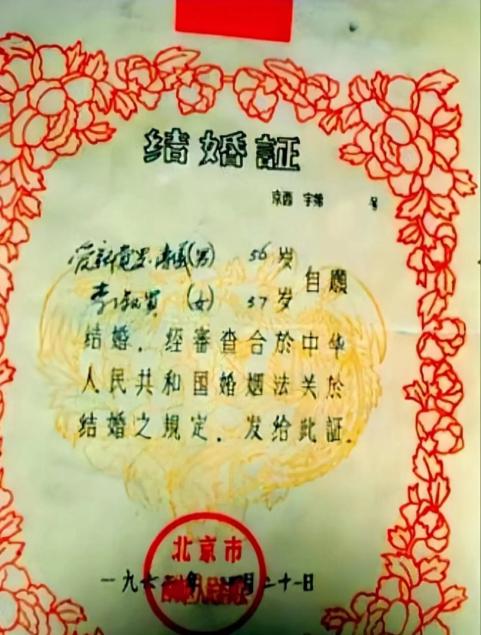 结婚証
京西 字第 号
爱新觉罗溥儀(男) 56 岁
李淑賢 (女) 37 岁
自願
结婚，经審查合於中华
人民共和国婚姻法关於
结婚之規定，发给此証。
北京市
一九六 年 月二十一日